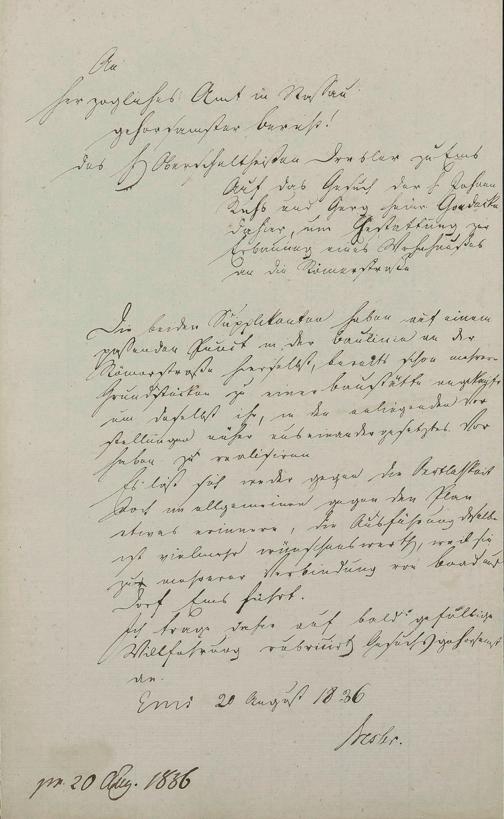 An
Herzogliches Amt in Nassau
gehorsamster Bericht!
des H Oberschultheisen Dresler zu Ems
Auf das Gesuch der H Johann
und Georg Heinr
dahier, um Gestattung zur
Erbauung eines Wohnhauses
an die Römerstraße
Die beiden Supplikanten haben auf einem
passenden Punct in der Baulinie an der
Römerstraße hierselbst, bereits schon mehrere
Grundstücken zu einer Baustätte angekauft
um daselbst ihr, in den anliegenden Vor
stellungen näher auseinandergesetztes Vor
haben zu realisiren
Es läßt sich weder gegen die Örtlichkeit
noch im allgemeinen gegen den Plan
etwas erinnern, die Ausführung desselben
ist vielmehr wünschenswerth, weil sie
zur mehrerer Verbindung von Baad und
Dorf Ems führt.
Ich trage daher auf bald gefällige
Willfahrung rubricirt Gesuchs gehorsamst
an.
Ems 20 August 1836
pr. 20 Aug. 1836